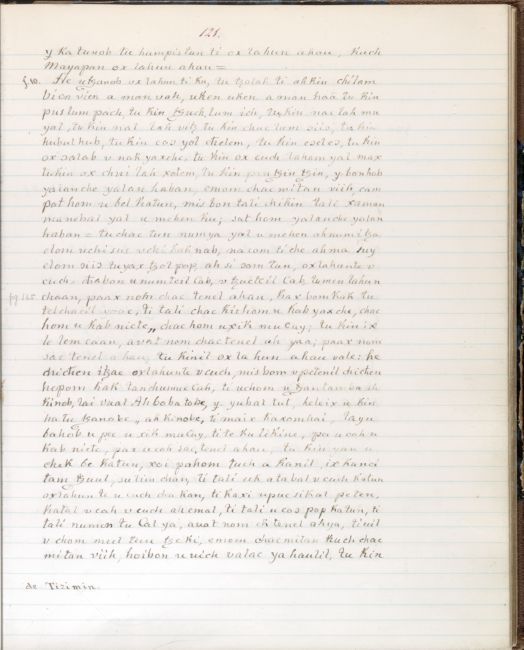 121.
y katunob tu humpistun ti ox lahun ahau, kuch
Mayapan ox lahun ahau =
§.10. He u tzanob ox lahun ti ku, tu tzolah ti ah kin chilam
uien uien a man vah, uken uken a man haa tu kin
pus lum pach, tu kin tzuch lum ich, tu kin nac lah mu
yal, tu kin nac lah vitz tu kin chuc lum siic, tu kin
hubul hub, tu kin cos yol chelem, tu kin eseles, tu kin
ox salab u nak yaxche, tu kin ox cuch lahom yal max
tu kin ox chuilah xotem, tu kin pan tzin tzin, y banhob
yalanche yalan haban, emom chac mitan viih, cam
pat hom u bel katun, mis bon tali chikin tali xaman
manebal yal u mehen ku; sat hom yalanche yalan
haban = tu chac tun numya yal u mehen ah num itza
nacom ti che ah ma suy
tu yax tzol pop, ah si som tun, oxlahunte u
cuch. u numteil Cab, u tzucteil Cab, tumen lahun
pg 125 chaan, paax nom chac tenel ahau, hax bom kak tu
ti tali chac hichom u kab yaxche, chac
hom u kab nicte,, chac hom u xik mucuy; tu kin ix
le lem caan, avat nom chac tenel ah yaa; paax nom
sac tenel ahau, tu kinil ox la hun ahau vale: he
chichen itzae oxlahunte u cuch, mis bom u petenil chichen
hopom kak tanchumuc Cab, ti uchom u
kinob, lai vaat Ah bobatobe, y. yubal tut, heleix u kin
katu tzanobe,, ah kinobe, ti maix haxomhai, layu
bahob u pec u xik mucuy ti te ku likine, pec u cah u
kab nicte, pax u cah sac tenel ahau, tu kin yan u
chek be katun, xoi pahom tuch a kanil, ix kanci
tam tzuul, sulim chan, ti tali uch atabal u cuch katun
oxlahun te u cuch cha kan, ti kaxi u puc sikal peten,
katal u cah u cuch ah emal, ti tali u cos pop katun, ti
tali numen tu Cal ya, avat nom ch tenel ahya, ti uil
u chom mul tun tzeki, emom chac mitan kuch chac
mitan viih, hoibon u uich valac ya haulil, tu kin
de Tizimin.